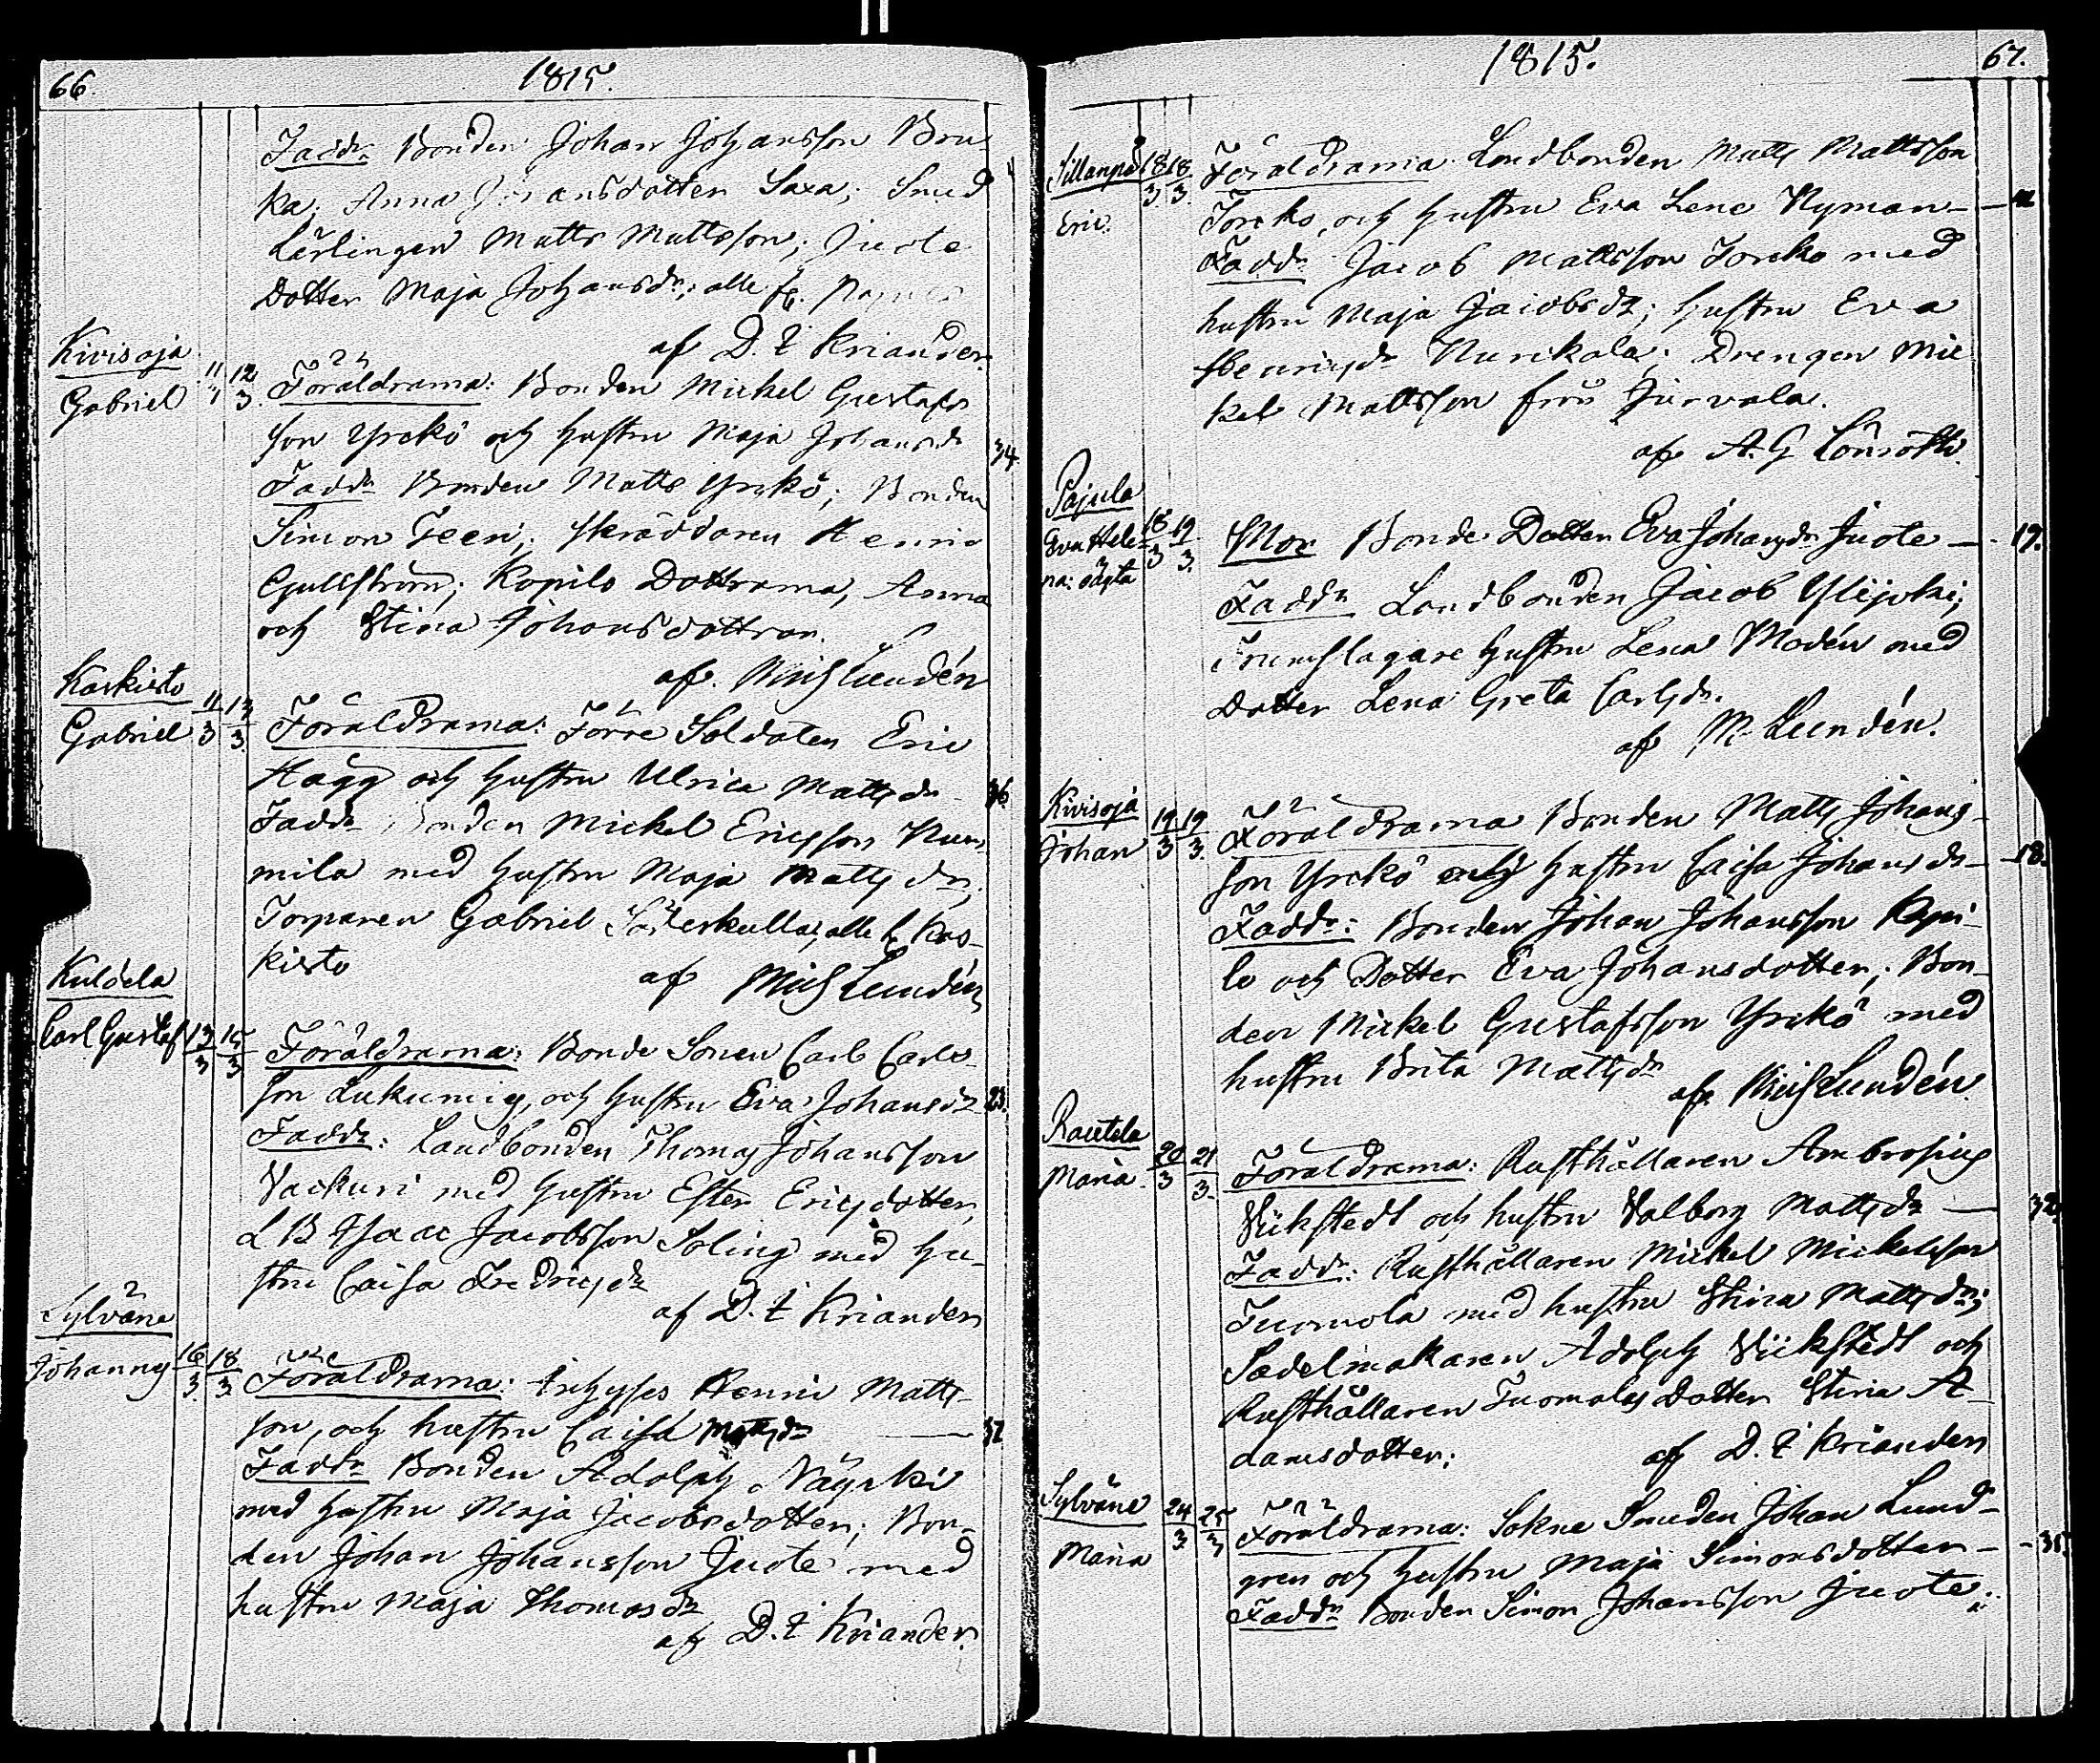 66. 1815.
Faddr Bonden Johan Johansson Bru-
ka; Anna Johansdotter Saxa; Smed
Lärlingen Matts Mattsson; Juote
Dotter Maja Johansdr; alle fr.
af D. F. Kriander.
Kivisoja
Gabriel 11/3 12/3. Föräldrarna: Bonden Mickel Gustafs
son Yrckö och hustru Maja Johansdr 34.
Faddr Bonden Matts Yrckö; Bonden
Simon Teeri; Skräddaren Henric
Gullström; Kopilo Döttrarna, Anna
och Stina Johansdöttrar.
af. Mich Lundén
Karkisto
Gabriel 11/3 13/3. Föräldrarna: Förre Soldaten Eric
Hägg och hustru Ulrica Mattsdr 36.
Faddr Bonden Mickel Ericsson Num
mila med hustru Maja Mattsdr,
Torparen Gabriel alle fr Kar-
kisto
af Mich Lundén
Kuldela
Carl Gustaf 13/3 15/3 Föräldrarna: Bonde Sonen Carl Carls-
son Lukumieg, och hustru Eva Johansdr 23.
Faddr: Landbonden Thomas Johansson
Vackuri med hustru Ester Ericsdotter,
L B Isaac Jacobsson Soling med hu-
stru Caisa Fredricsdr
af D. F. Kriander
Sylväne
Johannes 16/3. 18/3 Föräldrarna: Inhyses Henric Matts-
son, och hustru Caisa Mattsdr 32
Faddr Bonden Adolph Näyrki
med hustru Maja Jacobsdotter; Bon-
den Johan Johansson Juote med
hustru Maja Thomasdr
af D. F. Kriander.
1815. 67.
Sillanpä 18/3 18/3. Föräldrarna Landbonden Matts Mattsson
Eric. Torcko, och hustru Eva Lena Nyman
Faddr Jacob Mattsson Torcko med
hustru Maja Jacobsdr; hustru Eva
Henricsdr Nurckala; Drengen Mic
kel Mattsson från Jurvala.
af A. G. Lönroth.
Pajula
Eva Hele- 18/3 19/3. Mor Bonde Dotter Eva Johansdr Juote 19.
na: oägta
Faddr Landbonden Jacob Ylijoki;
Trumslagare hustru Lena Modén med
Dotter Lena Greta Carlsdr.
af M. Lundén.
Kivisoja
Johan 19/3 19/3. Föräldrarna Bonden Matts Johans-
son Yrckö och hustru Caisa Johansdr 18.
Faddr: Bonden Johan Johansson Kopi-
lo och Dotter Eva Johansdotter; Bon-
den Mickel Gustafsson Yrckö med
hustru Brita Mattsdr
af. Mich Lundén.
Rautela
Maria. 20/3 21/3. Föräldrarna: Rusthållaren Ambrosius
Vickstedt och hustru Valborg Mattsdr 32.
Faddr: Rusthållaren Mickel Mickelsson
Tuomola med hustru Stina Mattsdr;
Sadelmakaren Adolph Vickstedt och
Rusthållaren Tuomolas Dotter Stina A-
damsdotter;
af D. F. Kriander
Sylväne
Maria 24/3 25/3 Föräldrarna: Sokne Smeden Johan Lund-
gren och hustru Maja Simonsdotter 35.
Faddr Bonden Simon Johansson Juote;